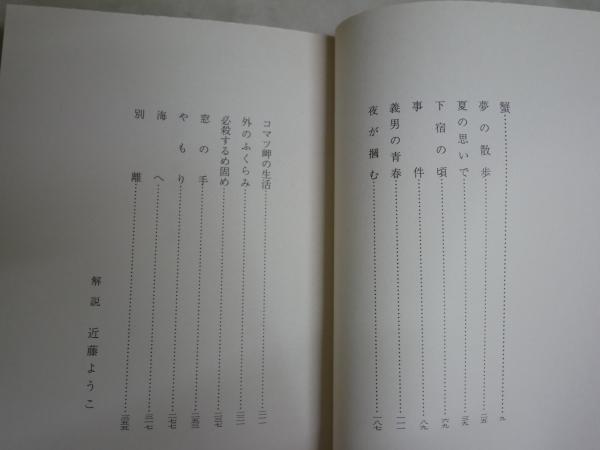 蟹 九
夢の散歩 二五
夏の思いで 三九
下宿の頃 六九
事件 八九
義男の青春 一一一
夜が掴む 一八七
コマツ岬の生活 二一一
外のふくらみ 二二一
必殺するめ固め 二三七
窓の手 二五三
やもり 二七七
海へ 三一七
別離 三五五
解説 近藤ようこ